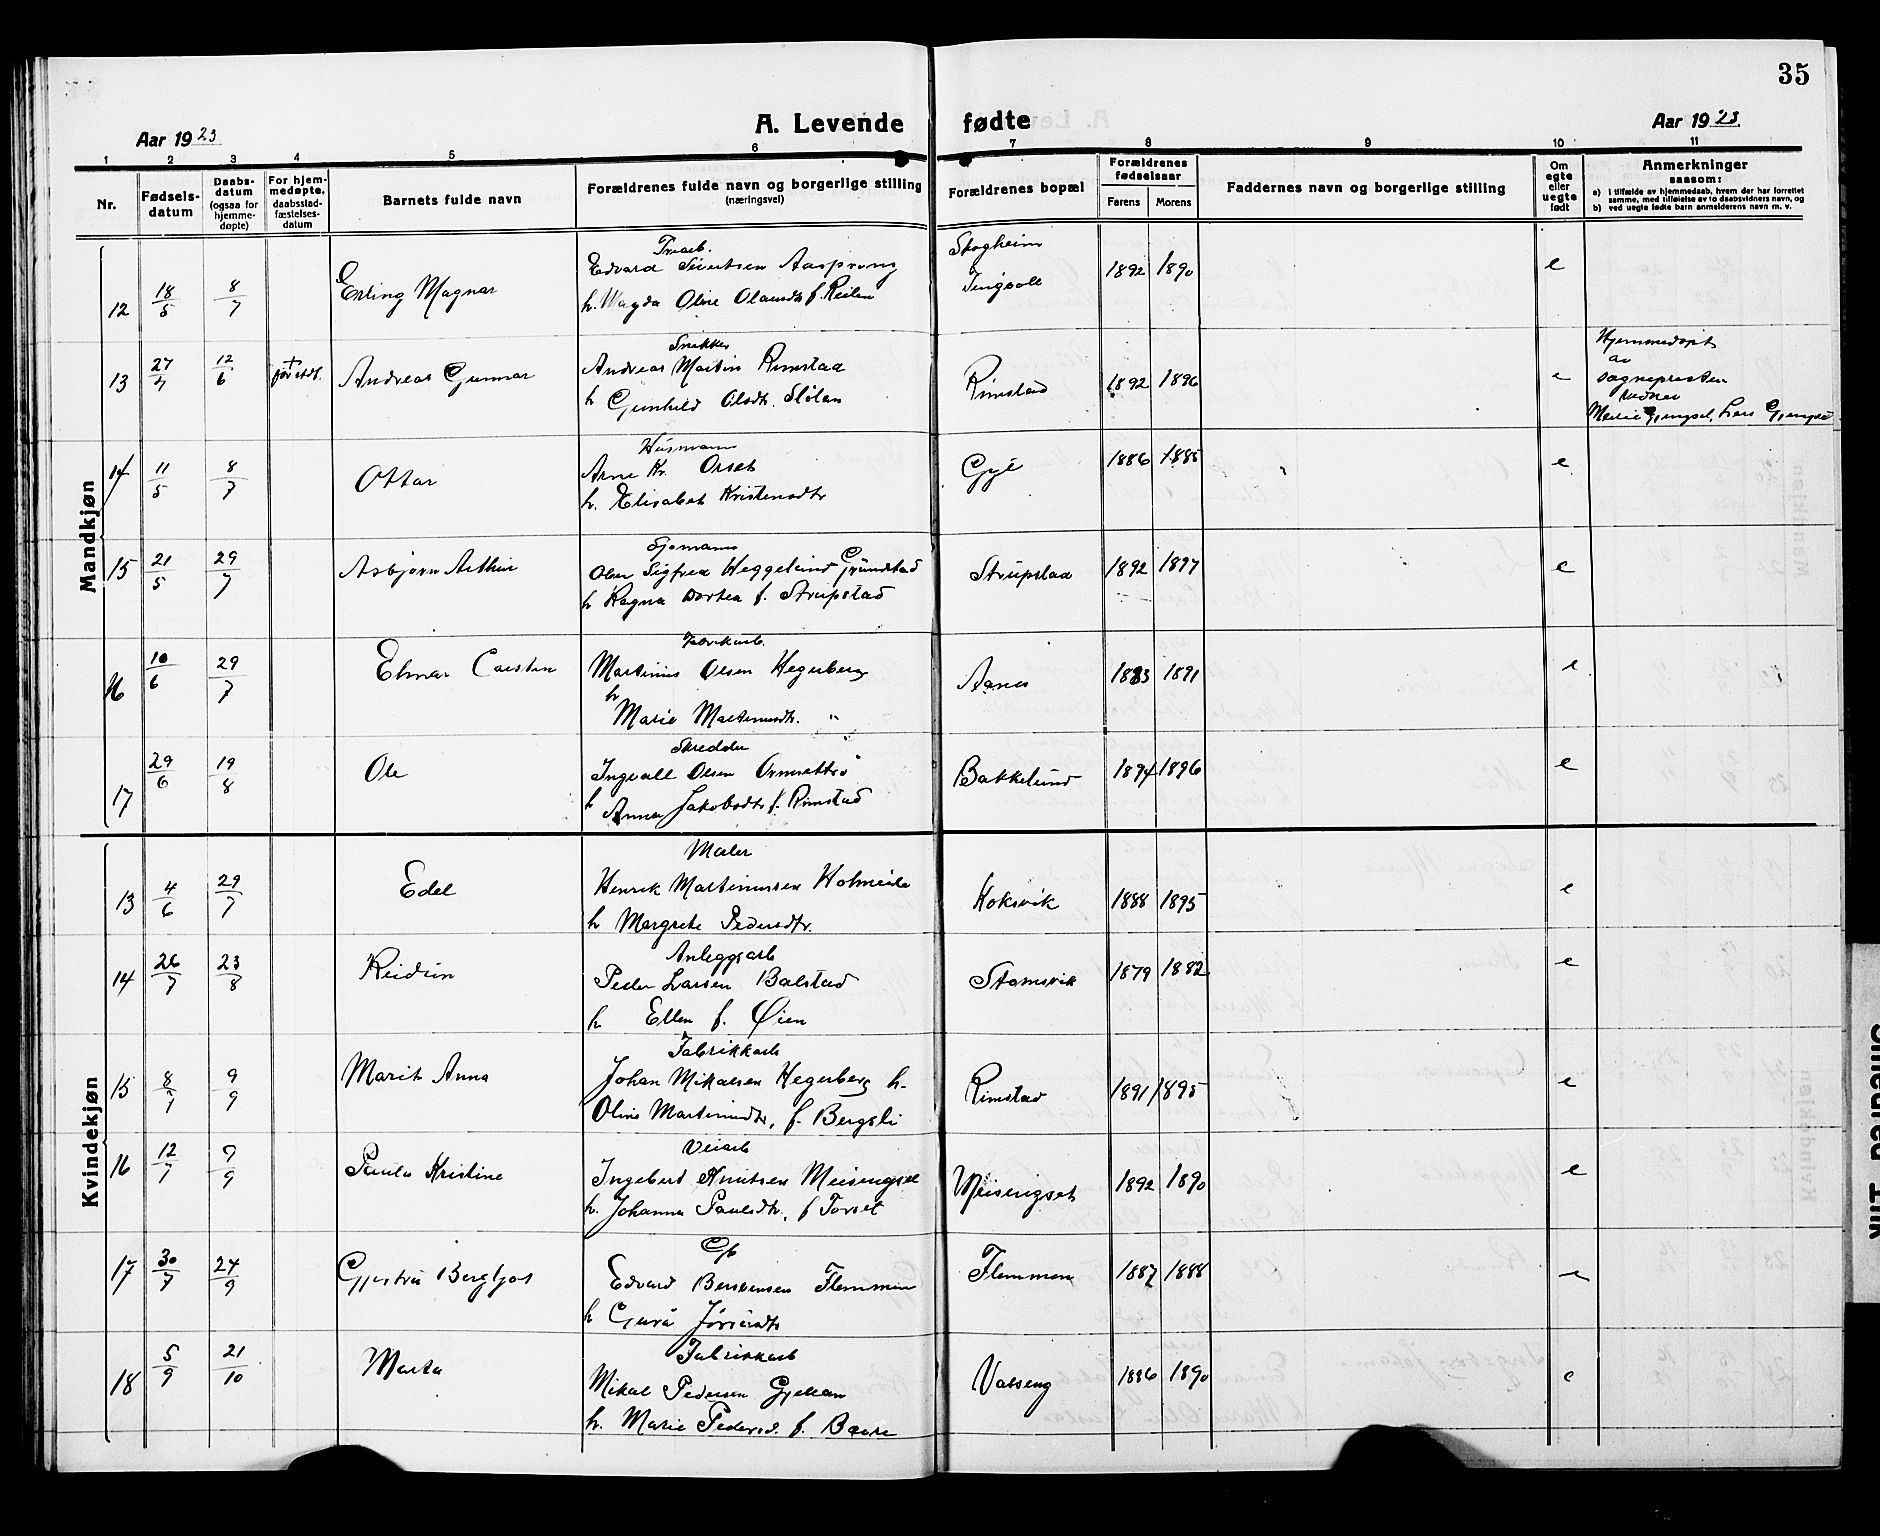 35
Aar 1923
A. Levende fødte
Aar 1923
1 2 3 4 5 6 7 8 9 10 11
Nr.
Fødsels-
datum
Daabs-
datum
(ogsaa for
hjemme-
døpte)
For hjem-
medøpte,
daabsstad-
fæstelses-
datum
Barnets fulde navn
Forældrenes fulde navn og borgerlige stilling
(næringsvei)
Forældrenes bopæl
Forældrenes
fødselsaar
Farens Morens
Faddernes navn og borgerlige stilling
Om
egte
eller
uegte
født
Anmerkninger
saasom:
a) i tilfælde av hjemmedaab, hvem der har forrettet
samme, med tilføielse av to daabsvidners navn, og
b) ved uegte fødte barn anmelderens navn m. v.
Mandkjøn
12 18/5 8/7 Erling Magnar
Edvard Sivertsen Aasprong
h. Magda Oline Olausdtr f. Reiten
Skogheim
Tingvoll
1892 1890 e
13 27/4 12/6 + før stdf. Andreas Gunnar
Snekker
Andreas Martin Rimstad
h Gunhild Olsdtr. Slølan
Rimstad 1892 1896 e
Hjemmedøpt
av
sognepresten
14 11/5 8/7 Ottar
Husmann
Arne Kr. Orset
h. Elisabet Kristensdtr
1886 1885 e
15 21/5 29/7 Asbjørn Arthur
Sjømann
Olav Sigfred Heggelund Grundstad
h Ragna Dortea f. Strupstad
Strupstad 1892 1897 e
16 10/6 29/7 Elmar Carsten
Fabrikarb.
Martinus Olsen Hegerberg
h
Marie Martinusdtr. "
Aanes 1883 1891 e
17 29/6 19/8 Ole
Skredder
Ingvall Olsen Ormsettrø
h Anna Jakobsdtr f. Rimstad
Bakkelund 1894 1896 e
Kvindekjøn
13 4/6 29/7 Edel
Maler
Henrik Martinussen Holmeide
h Margrete Pedersdtr.
Koksvik 1888 1895 e
14 26/7 23/8 Reidun
Anleggsarb
Peder Larsen Balstad
h Ellen f. Øien
Stamsvik 1879 1882 e
15 8/7 9/9 Marit Anna
Fabrikkarb
Johan Mikalsen Hegerberg h.
Oline Martinusdtr, f. Bergsli
Rimstad 1891 1895 e
16 12/7 9/9 Paula Kristine
Veiarb
Ingebert Knutsen Meisingset
h. Johanna Paulsdtr, f Torset
Meisingset 1892 1890 e
17 30/7 24/9 Gjertrud Bergljot
Edvard Berntsen Flemmen
h Guru
Flemmen 1887 1888 e
18 5/9 21/10 Marta
Fabrikkarb
Mikal Pedersen Gjelan
h. Marie Pedersd. f. Bævre
Vatseng 1886 1890 e